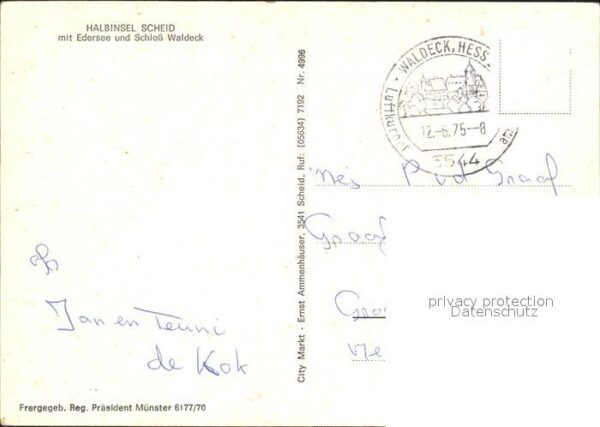 HALBINSEL SCHEID
mit Edersee und Schloß Waldeck
City Markt - Ernst Ammenhäuser, 3541 Scheid, Ruf: (05634) 7192 Nr. 4996
WALDECK, HESS.
12.-6.75--8
3544
P v d Graaf
Graaf
privacy protection
Datenschutz
Jan en Teuni
de Kok
Frergegeb. Reg. Präsident Münster 6177/70